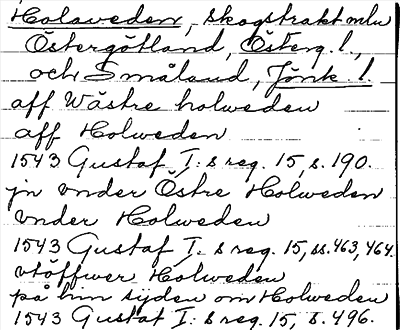 Holaveden, skogstrakt mlu
Östergötland, Österg. l.,
och Småland, Jönk. l.
aff Wästre holweden
aff Holweden
1543 Gustaf I:s reg. 15, s. 190.
jn vnder Östre Holweden
vnder Holweden
1543 Gustaf I. s reg. 15, ss. 463, 464.
vtöffwer Holweden
på hin sijden om Holweden
1543 Gustaf I:s reg. 15, s. 496.